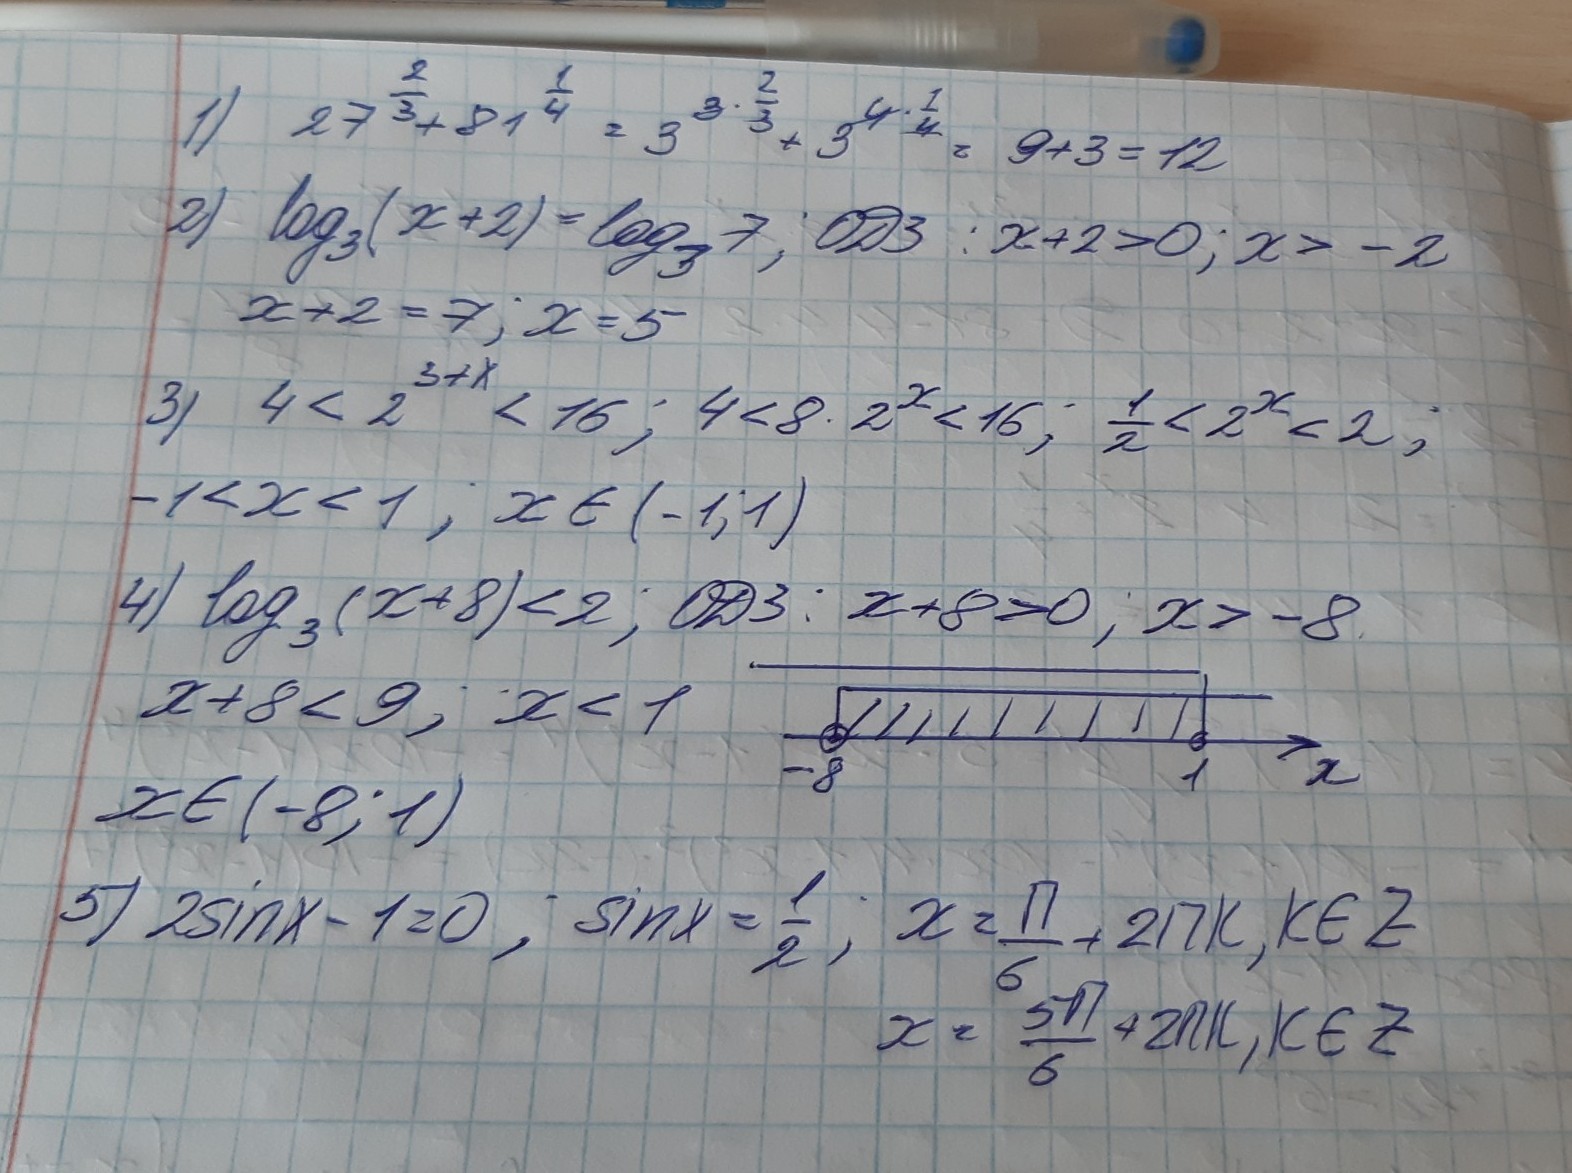 1) 27^(2/3) + 81^(1/4) = 3^(3·2/3) + 3^(4·1/4) = 9+3=12
2) log₃(x+2) = log₃7; ОДЗ : x+2>0; x> -2
x+2=7; x=5
3) 4 < 2^(3+x) < 16; 4<8·2^x<16; 1/2<2^x<2;
-1<x<1; x∈(-1;1)
4) log₃(x+8)<2; ОДЗ: x+8>0; x>-8
x+8<9; x<1
-8 1 x
x∈(-8;1)
5) 2sinx-1=0; sinx=1/2; x=П/6+2Пк, к∈Z
x= 5П/6+2Пк, к∈Z